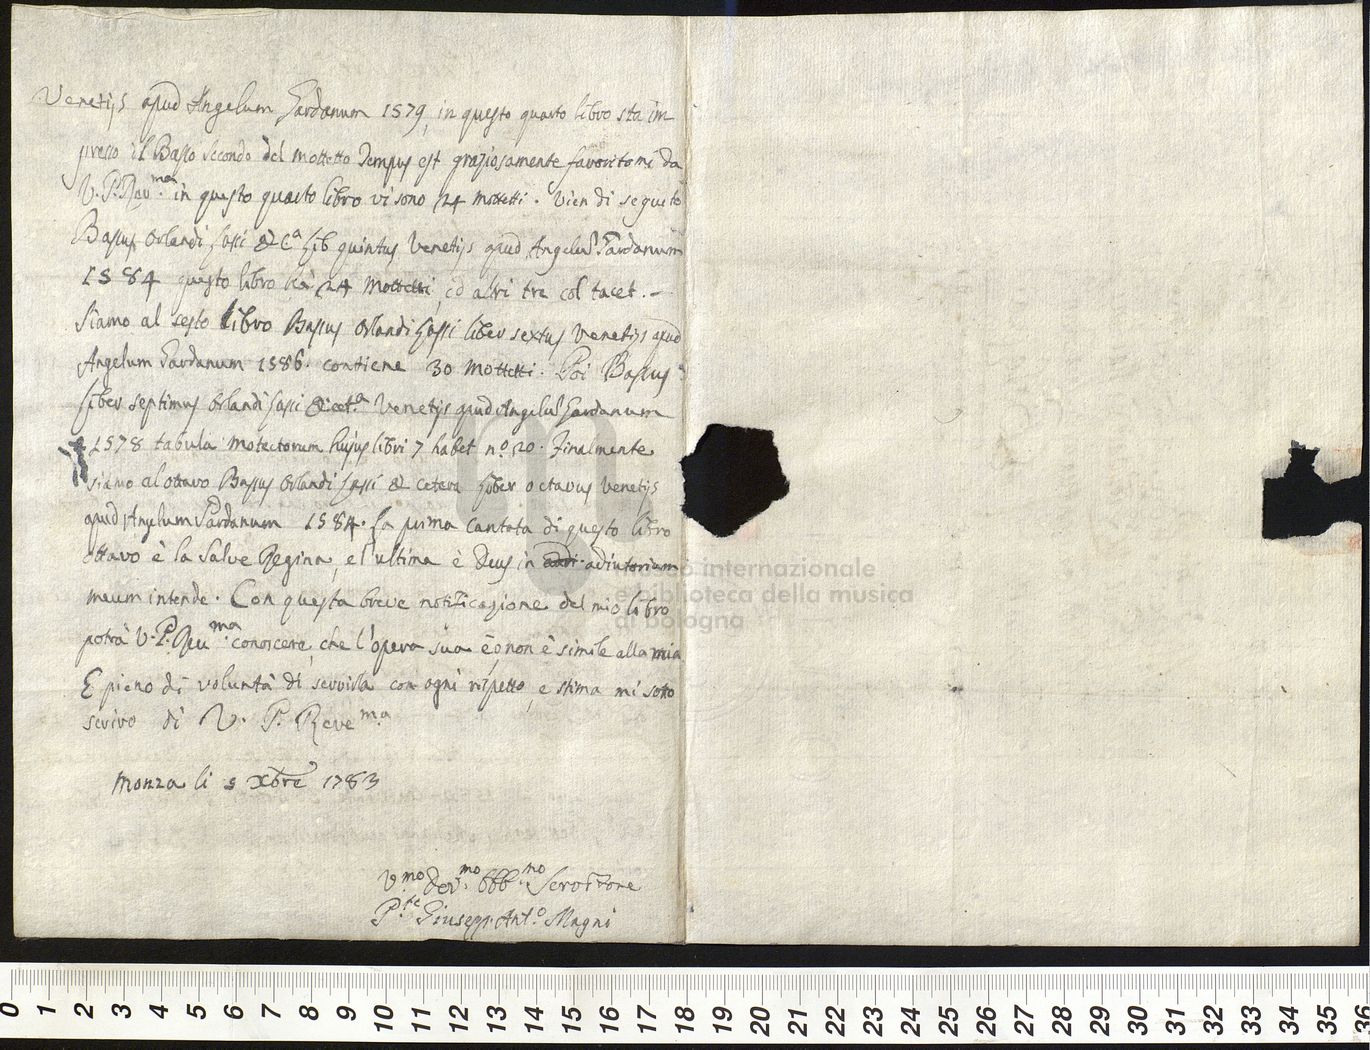 Venetijs apud Angelum Gardanum 1579, in questo quarto libro sta im
presso il Basso secondo del mottetto Tempus est graziosamente favoritomi da
V. P. Rev.ma in questo quarto libro vi sono 24 mottetti. Vien di seguito
Bassus Orlandi Lassi & c.a Lib quintus Venetijs apud Angelu Gardanum
1584 questo libro hà 24 Mottetti, ed altri tre col tacet. -
Siamo al sesto Libro Bassus Orlandi Lassi liber sextus Venetijs apud
Angelum Gardanum 1586. contiene 30 Mottetti. Poi Bassus
Liber septimus Orlandi Lassi & cet.a Venetijs apud Angelu Gardanum
1578 tabula motectorum hujus libri 7 habet n.o 20. Finalmente
siamo al ottavo Bassus Orlandi Lassi & cetera Liber octavus Venetijs
apud Angelum Gardanum 1584. La prima cantata di questo libro
ottavo è la Salve Regina, e l'ultima è Deus in adiutorium
meum intende. Con questa breve notificazione del mio libro
potrà V. P. Reu.ma conoscere, che l'opera sua è, o non è simile alla mia
E pieno di voluntà di servirla con ogni rispetto, e stima mi sotto
scrivo di V. P. Reve.ma
Monza li 5 Xbre 1783
V.mo Dev.mo Obb.mo Servitore
P.te Giusepp. Ant.o Magni
museo internazionale
e biblioteca della musica
di bologna
0 1 2 3 4 5 6 7 8 9 10 11 12 13 14 15 16 17 18 19 20 21 22 23 24 25 26 27 28 29 30 31 32 33 34 35 36